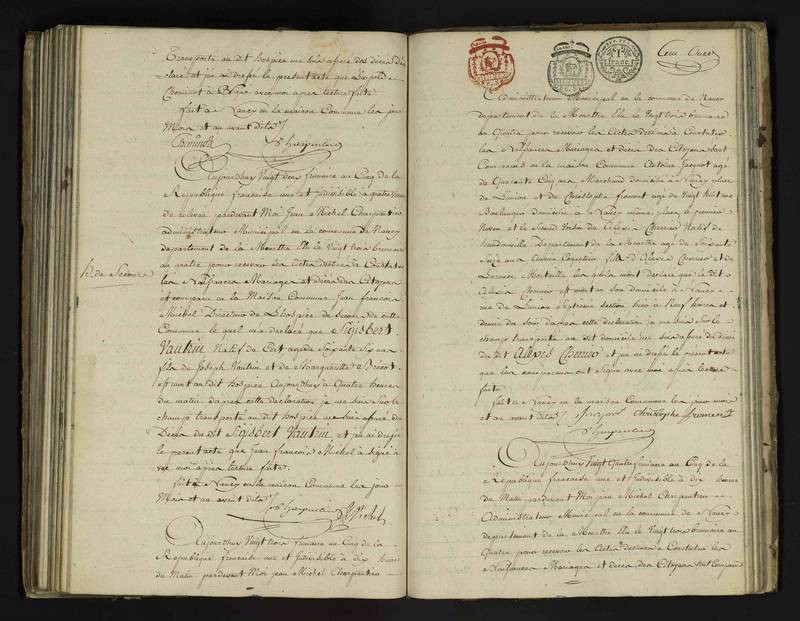 Transporté au dit hospice me suis assuré des décès
claré et jai dressé le present acte que Leopold
a Signé avec moi apres lecture faite
fait a Nancy en la maison Commune les jour
Mois et an avant dits
Charpentier
Aujourdhuy Vingt deux frimaire au Cinq de la
Republique française une et Indivisible a quatre heures
de relevée pardevant Moi Jean Michel Charpentier
administrateur Municipal en la commune de Nancy
departement de la Meurthe Elu le Vingt trois brumaire
au quatre pour recevoir les Actes destinés à Constater
H. de Secours
les Naissances Mariages et décès des Citoyens
est comparu en la Maison Commune Jean francois
Michel Directeur de Lhospice de Secours de cette
Commune le quel m'a declaré que Sigisbert
Vautrin Natif de Cert agé de Soixante Six ans
fils de Joseph Vautrin et de Marguerite
est mort au dit hospice Aujourdhuy à Quatre heures
du matin dapres cette déclaration je me suis Sur le
champ transporté au dit hospice me suis assuré du
Décès du dit Sigisbert Vautrin et jai dressé
le present acte que Jean francois Michel à Signé à
vec moi après lecture faite.
fait a Nancy en la maison Commune les jour
Mois et an avant dits
Charpentier Michel
Aujourdhuy Vingt trois frimaire au Cinq de la
Republique française une et Indivisible à dix heures
du Matin pardevant Moi jean Michel Charpentier
1 franc
Cent Onze
Administrateur Municipal en la commune de Nancy
departement de la Meurthe Elu le Vingt trois brumaire
au Quatre pour recevoir les Actes destinés à Constater
les Naissances Mariages et décès des Citoyens Sont
Comparus en la maison Commune Antoine Jacquot agé
de Quarante Cinq ans Marchand domicilié à Nancy place
de Lunion et de Christophe fromont agé de Vingt huit ans
Boulanger domicilié à Nancy même place, le premier
Voisin et le Second Voisin de Alexis Natif de
haudonville Departement de la Meurthe agé de Soixante
Seize ans fils d'Alexis et de
Lorence les quels mont declaré que le dit
Alexis est mort en son domicilié à Nancy
rue de Lunion Septieme section hier à Neuf heures et
demie du Soir dapres cette déclaration je me suis Sur le
champ transporté au dit domicile me suis assuré du décès
du dit Alexis et jai dressé le present acte
que les comparans ont Signé avec moi apres lecture
faite
fait à Nancy en la maison Commune les jour mois
et an avant dits Jacquot Christophe fromont
Charpentier
Aujourdhuy Vingt Quatre frimaire au Cinq de la
Republique française une et Indivisible à dix heures
du Matin pardevant Moi jean Michel Charpentier
Administrateur Municipal en la commune de Nancy
departement de la Meurthe Elu le Vingt trois brumaire au
Quatre pour recevoir les Actes destinés à Constater les
Naissances Mariages et décès des Citoyens Sont Comparus